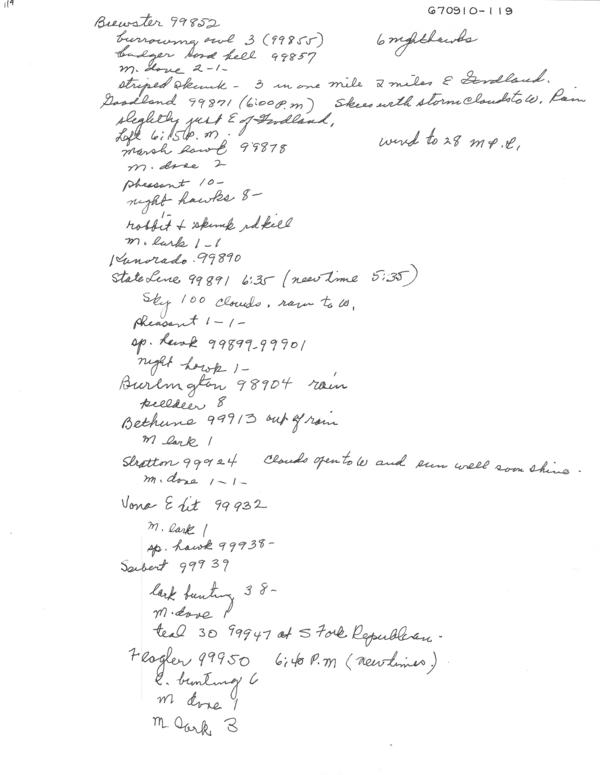 119
G70910-119
Brewster 99852
burrowing owl 3 (99855) 6 nighthawks
badger road kill 99857
m. dove 2-1-
striped skunk - 3 in one mile 2 miles E Goodland.
Goodland 99871 (6:00 P.m) Skies with storm clouds to W. Rain
slightly just E of Goodland,
Left 6:15 P.m. wind to 28 m.p.h,
marsh hawk 99878
m. dove 2
pheasant 10-
night hawks 8-
rabbit 1- + skunk rd kill
m. lark 1-1
Kanorado 99890
State Line 99891 6:35 (new time 5:35)
Sky 100 clouds, rain to W,
pheasant 1-1-
sp. hawk 99899-99901
night hawk 1-
Burlington 98904 rain
killdeer 8
Bethune 99913 out of rain
m lark 1
Stratton 99924 Clouds open to W and sun will soon shine.
m. dove 1-1-
Vona E lit 99932
m. lark 1
sp. hawk 99938-
Seibert 99939
lark bunting 38-
m. dove 1
teal 30 99947 at S Fork Republican.
Flagler 99950 6:40 P.m (new times)
l. bunting 6
m dove 1
m lark 3